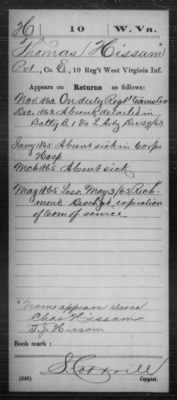 H | 10 | W. Va.
Thomas Hissam
Pvt., Co. E, 10 Reg't West Virginia Inf.
Appears on Returns as follows:
Nov. 1863 On duty Regtl Teamster
Dec. 1863 Absent, detached in
Batty B, 1 Va L Arty Dec 29/63
Jany 1865 Absent sick in Corps
Hosp.
Mch 1865 Absent sick
May 1865 Loss. May 3/65 Rich-
mond Disch'gd, expiration
of term of service.
Name appears above
Chas Hissam
T. J. Hissom
Book mark:
(546) Copyist.